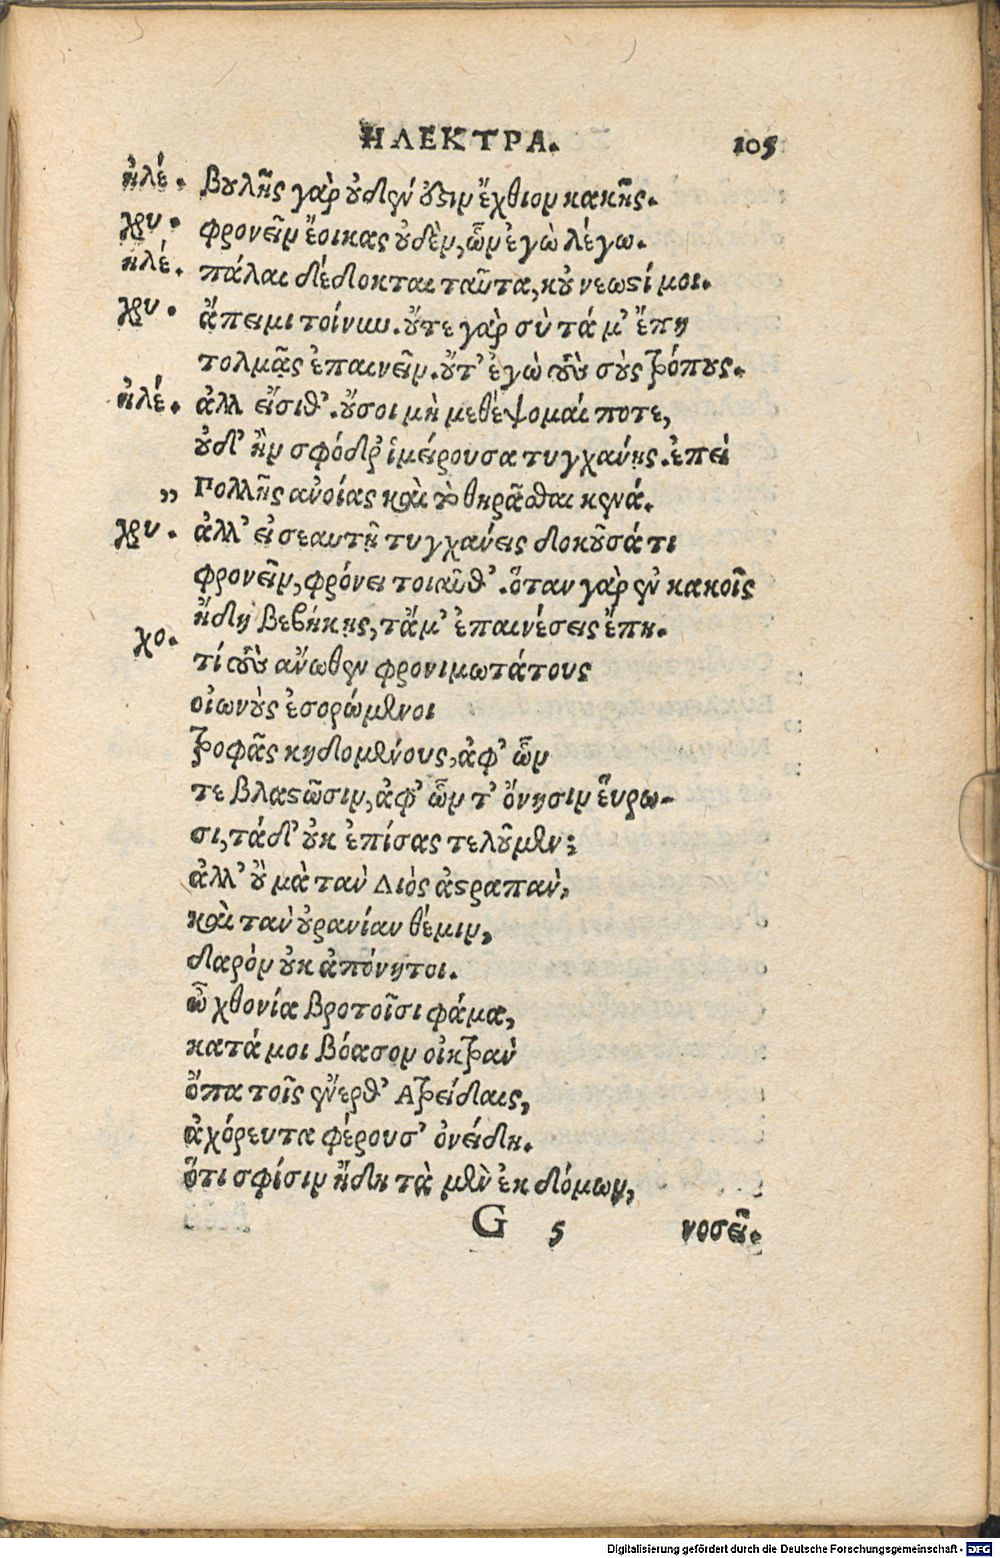 ΗΛΕΚΤΡΑ. 105
ἠλέ. βουλῆς γὰρ οὐδέν ὅςιν ἔχθιον κακῆς.
χρυ. φρονεῖν ἔοικας οὐδὲν, ὧν ἐγὼ λέγω.
ἠλέ. πάλαι δέδοκται ταῦτα, κοὐ νεωςί μοι.
χρυ. ἄπειμι τοίνυν. οὔτε γὰρ σὺ τά μ' ἔπη
τολμᾷς ἐπαινεῖν. οὔτ' ἐγὼ τοὺς σοὺς τρόπους.
ἠλέ. ἀλλ εἴσιθ'. οὔσοι μὴ μεθέψομαί ποτε,
οὐδ' ἢν σφόδρ' ἱμείρουσα τυγχάνῃς. ἐπεὶ
„ Πολλῆς ἀνοίας καὶ τὸ θηρᾶσθαι κενά.
χρυ. ἀλλ' εἰ σεαυτῇ τυγχάνεις δοκοῦσά τι
φρονεῖν, φρόνει τοιαῦθ'. ὅταν γὰρ ἐν κακοῖς
ἤδη βεβήκῃς, τἄμ' ἐπαινέσεις ἔπη.
χο. τί τοὺς ἄνωθεν φρονιμωτάτους
οἰωνοὺς ἐσορώμενοι
τροφᾶς κηδομένους, ἀφ' ὧν
τε βλαςῶσιν, ἀφ' ὧν τ' ὄνησιν εὕρω-
σι, τάδ' οὐκ ἐπίσας τελοῦμεν;
ἀλλ' οὒ μὰ τὰν Διὸς ἀςραπὰν,
καὶ τὰν οὐρανίαν θέμιν,
δαρὸν οὐκ ἀπόνητοι.
ὦ χθονία βροτοῖσι φάμα,
κατά μοι βόασον οἰκτρὰν
ὄπα τοῖς ἔνερθ' Ατρείδαις,
ἀχόρευτα φέρουσ' ὀνείδη.
ὅτι σφίσιν ἤδη τὰ μὲν ἐκ δόμων,
G 5 νοσεῖ.
Digitalisierung gefördert durch die Deutsche Forschungsgemeinschaft - DFG